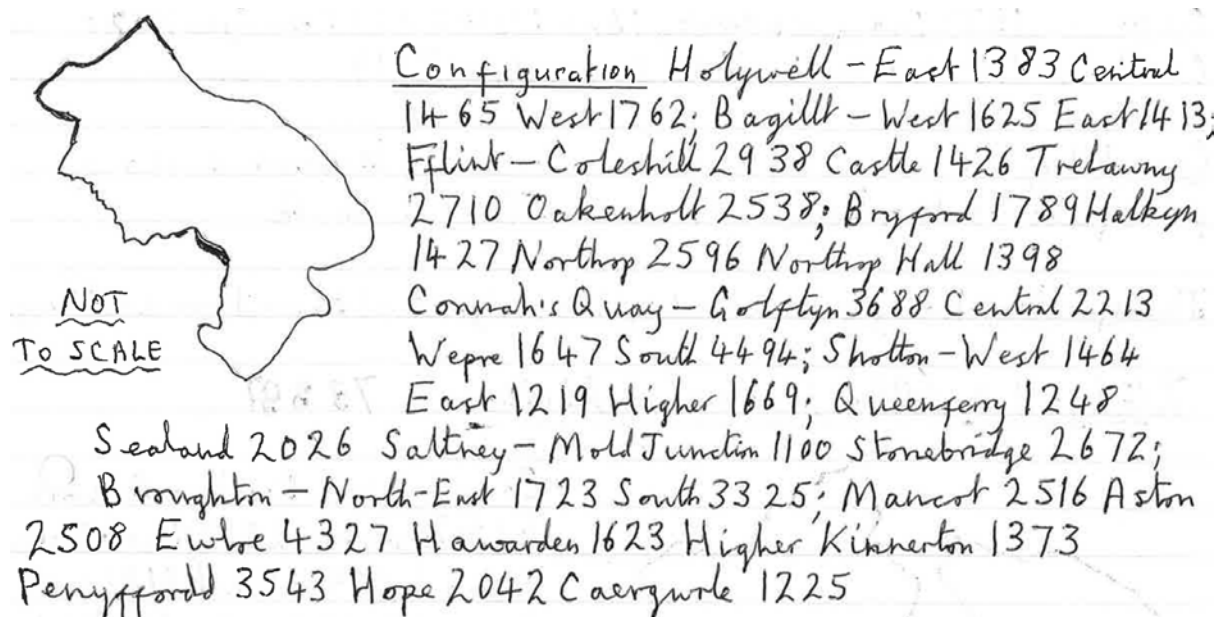 Configuration Holywell - East 1383 Central
1465 West 1762; Bagillt - West 1625 East 1413;
Fflint - Coleshill 2938 Castle 1426 Trelawny
2710 Oakenholt 2538; Bryford 1789 Halkyn
1427 Northop 2596 Northop Hall 1398
NOT
Connah's Quay - Golftyn 3688 Central 2213
TO SCALE
Wepre 1647 South 4494; Shotton - West 1464
East 1219 Higher 1669; Queensferry 1248
Sealand 2026 Saltney - Mold Junction 1100 Stonebridge 2672;
Broughton - North-East 1723 South 3325; Mancot 2516 Aston
2508 Ewloe 4327 Hawarden 1623 Higher Kinnerton 1373
Penyffordd 3543 Hope 2042 Caergwrle 1225